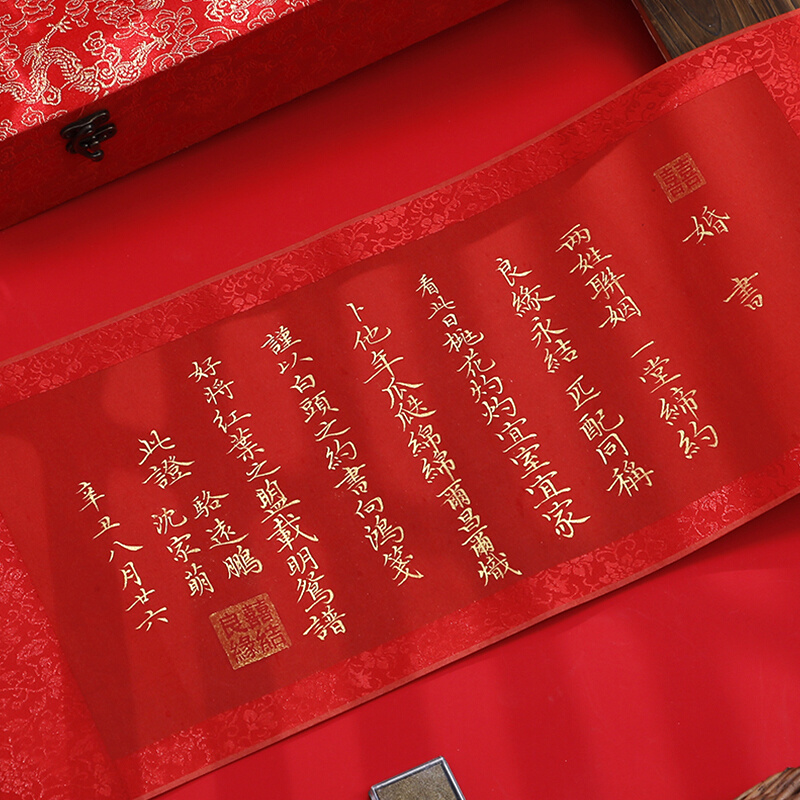 囍
婚書
两姓聯姻 一堂締約
良緣永结 匹配同稱
看此日桃花灼灼宜室宜家
卜他年瓜瓞綿綿爾昌爾熾
謹以白頭之約書向鴻箋
好將红葉之盟載明鴛譜
此證
駱遠鵬
沈家萌
辛丑八月廿六
囍結良緣